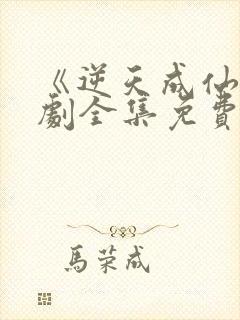 《逆天成仙
劇全集免費
馬荣成